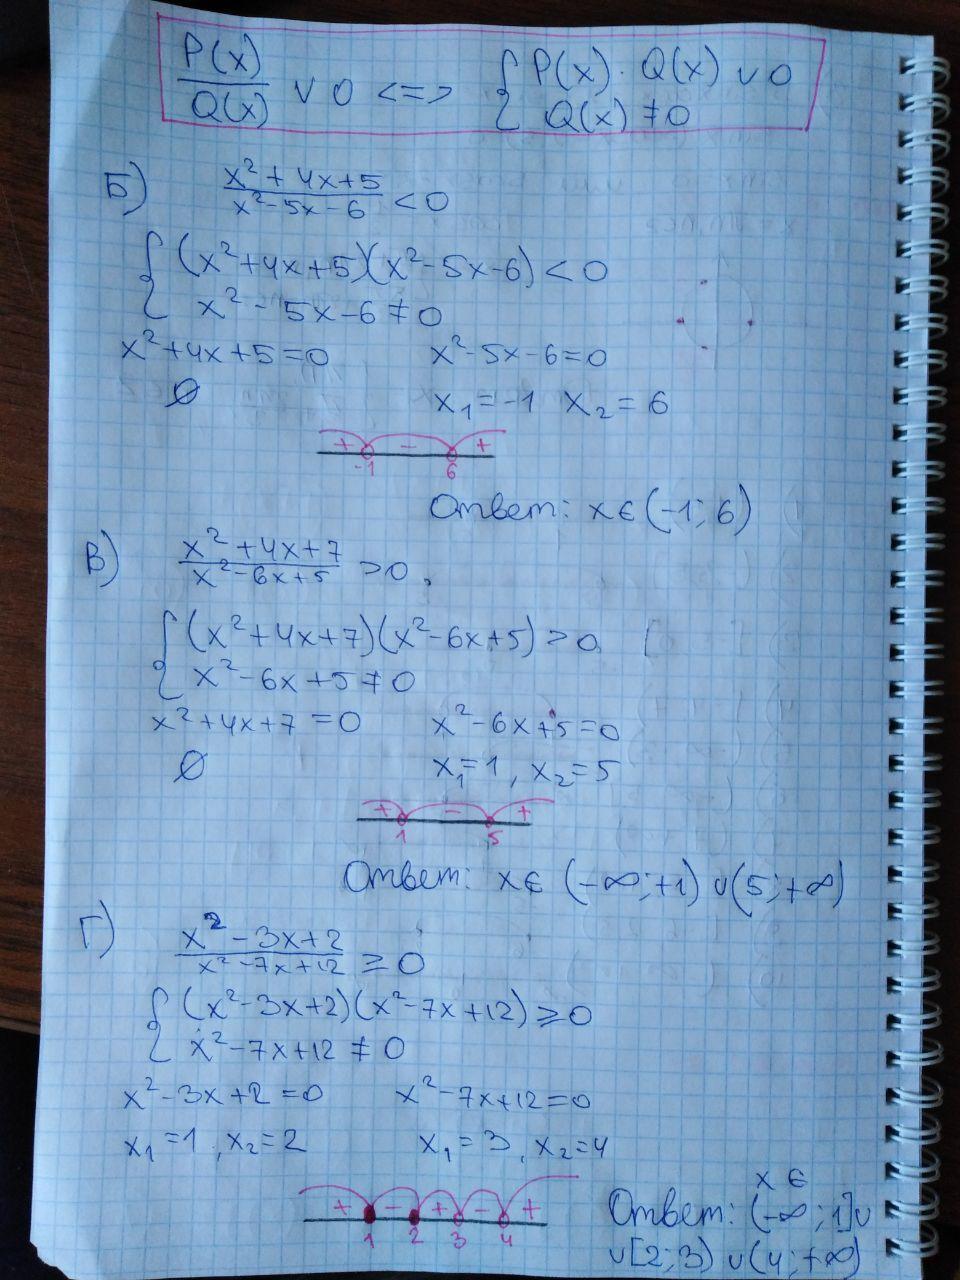 P(x)/Q(x) ∨ 0 <=> { P(x) · Q(x) ∨ 0
Q(x) ≠ 0
Б) (x² + 4x + 5)/(x² - 5x - 6) < 0
{ (x² + 4x + 5)(x² - 5x - 6) < 0
x² - 5x - 6 ≠ 0
x² + 4x + 5 = 0 x² - 5x - 6 = 0
∅ x₁ = -1 x₂ = 6
+ - +
-1 6
Ответ: x ∈ (-1; 6)
В) (x² + 4x + 7)/(x² - 6x + 5) > 0,
{ (x² + 4x + 7)(x² - 6x + 5) > 0
x² - 6x + 5 ≠ 0
x² + 4x + 7 = 0 x² - 6x + 5 = 0
∅ x₁ = 1, x₂ = 5
+ - +
1 5
Ответ: x ∈ (-∞; +1) ∪ (5; +∞)
Г) (x² - 3x + 2)/(x² - 7x + 12) ≥ 0
{ (x² - 3x + 2)(x² - 7x + 12) ≥ 0
x² - 7x + 12 ≠ 0
x² - 3x + 2 = 0 x² - 7x + 12 = 0
x₁ = 1, x₂ = 2 x₁ = 3, x₂ = 4
+ - + - +
1 2 3 4
x ∈
Ответ: (-∞; 1] ∪
∪ [2; 3) ∪ (4; +∞)